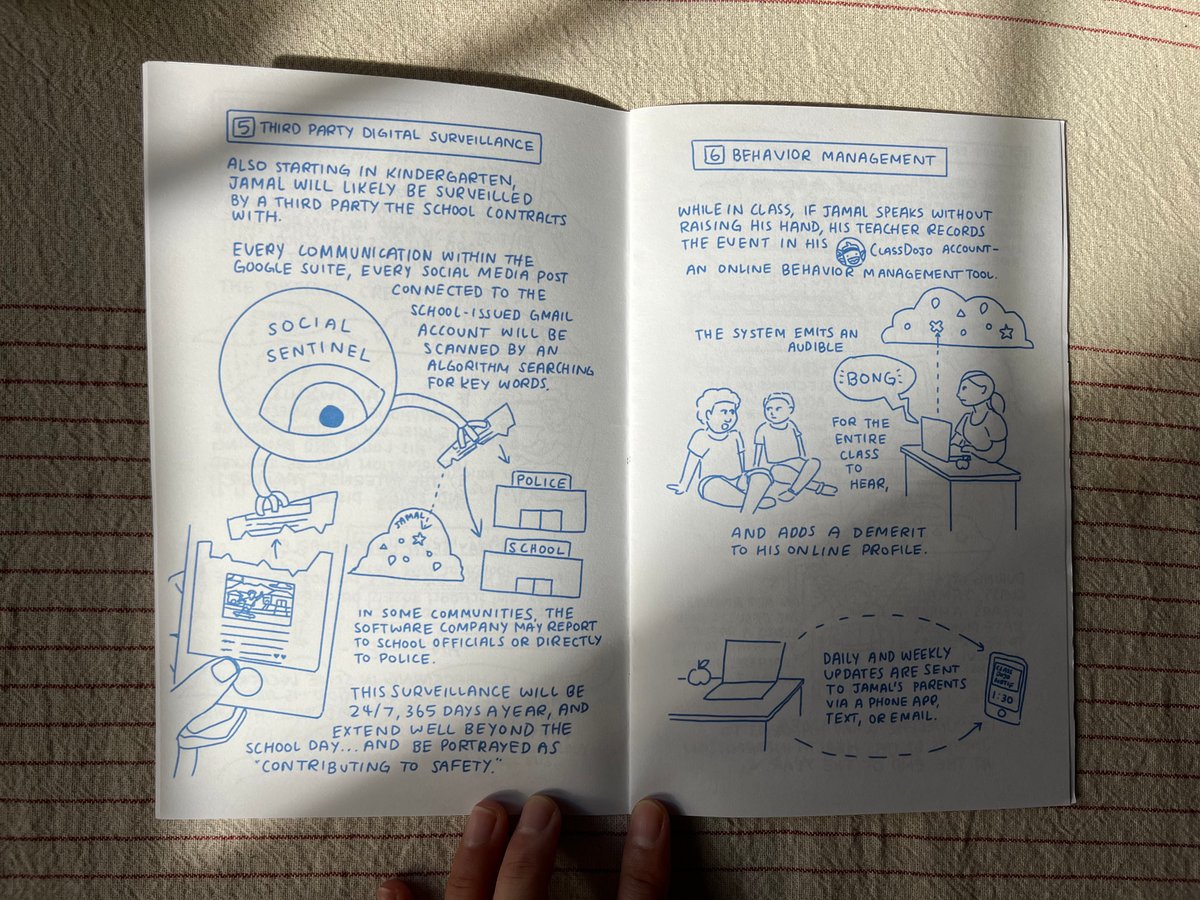 5 THIRD PARTY DIGITAL SURVEILLANCE
ALSO STARTING IN KINDERGARTEN,
JAMAL WILL LIKELY BE SURVEILLED
BY A THIRD PARTY THE SCHOOL CONTRACTS
WITH.
EVERY COMMUNICATION WITHIN THE
GOOGLE SUITE, EVERY SOCIAL MEDIA POST
CONNECTED TO THE
SCHOOL-ISSUED GMAIL
ACCOUNT WILL BE
SCANNED BY AN
ALGORITHM SEARCHING
FOR KEY WORDS.
SOCIAL
SENTINEL
POLICE
JAMAL!
SCHOOL
IN SOME COMMUNITIES, THE
SOFTWARE COMPANY MAY REPORT
TO SCHOOL OFFICIALS OR DIRECTLY
TO POLICE.
THIS SURVEILLANCE WILL BE
24/7, 365 DAYS A YEAR, AND
EXTEND WELL BEYOND THE
SCHOOL DAY... AND BE PORTRAYED AS
"CONTRIBUTING TO SAFETY."
6 BEHAVIOR MANAGEMENT
WHILE IN CLASS, IF JAMAL SPEAKS WITHOUT
RAISING HIS HAND, HIS TEACHER RECORDS
THE EVENT IN HIS CLASSDOJO ACCOUNT-
AN ONLINE BEHAVIOR MANAGEMENT TOOL.
THE SYSTEM EMITS AN
AUDIBLE
BONG
FOR THE
ENTIRE
CLASS
TO
HEAR,
AND ADDS A DEMERIT
TO HIS ONLINE PROFILE.
DAILY AND WEEKLY
UPDATES ARE SENT
TO JAMAL'S PARENTS
VIA A PHONE APP,
TEXT, OR EMAIL.
CLASS
DOJO
1:30